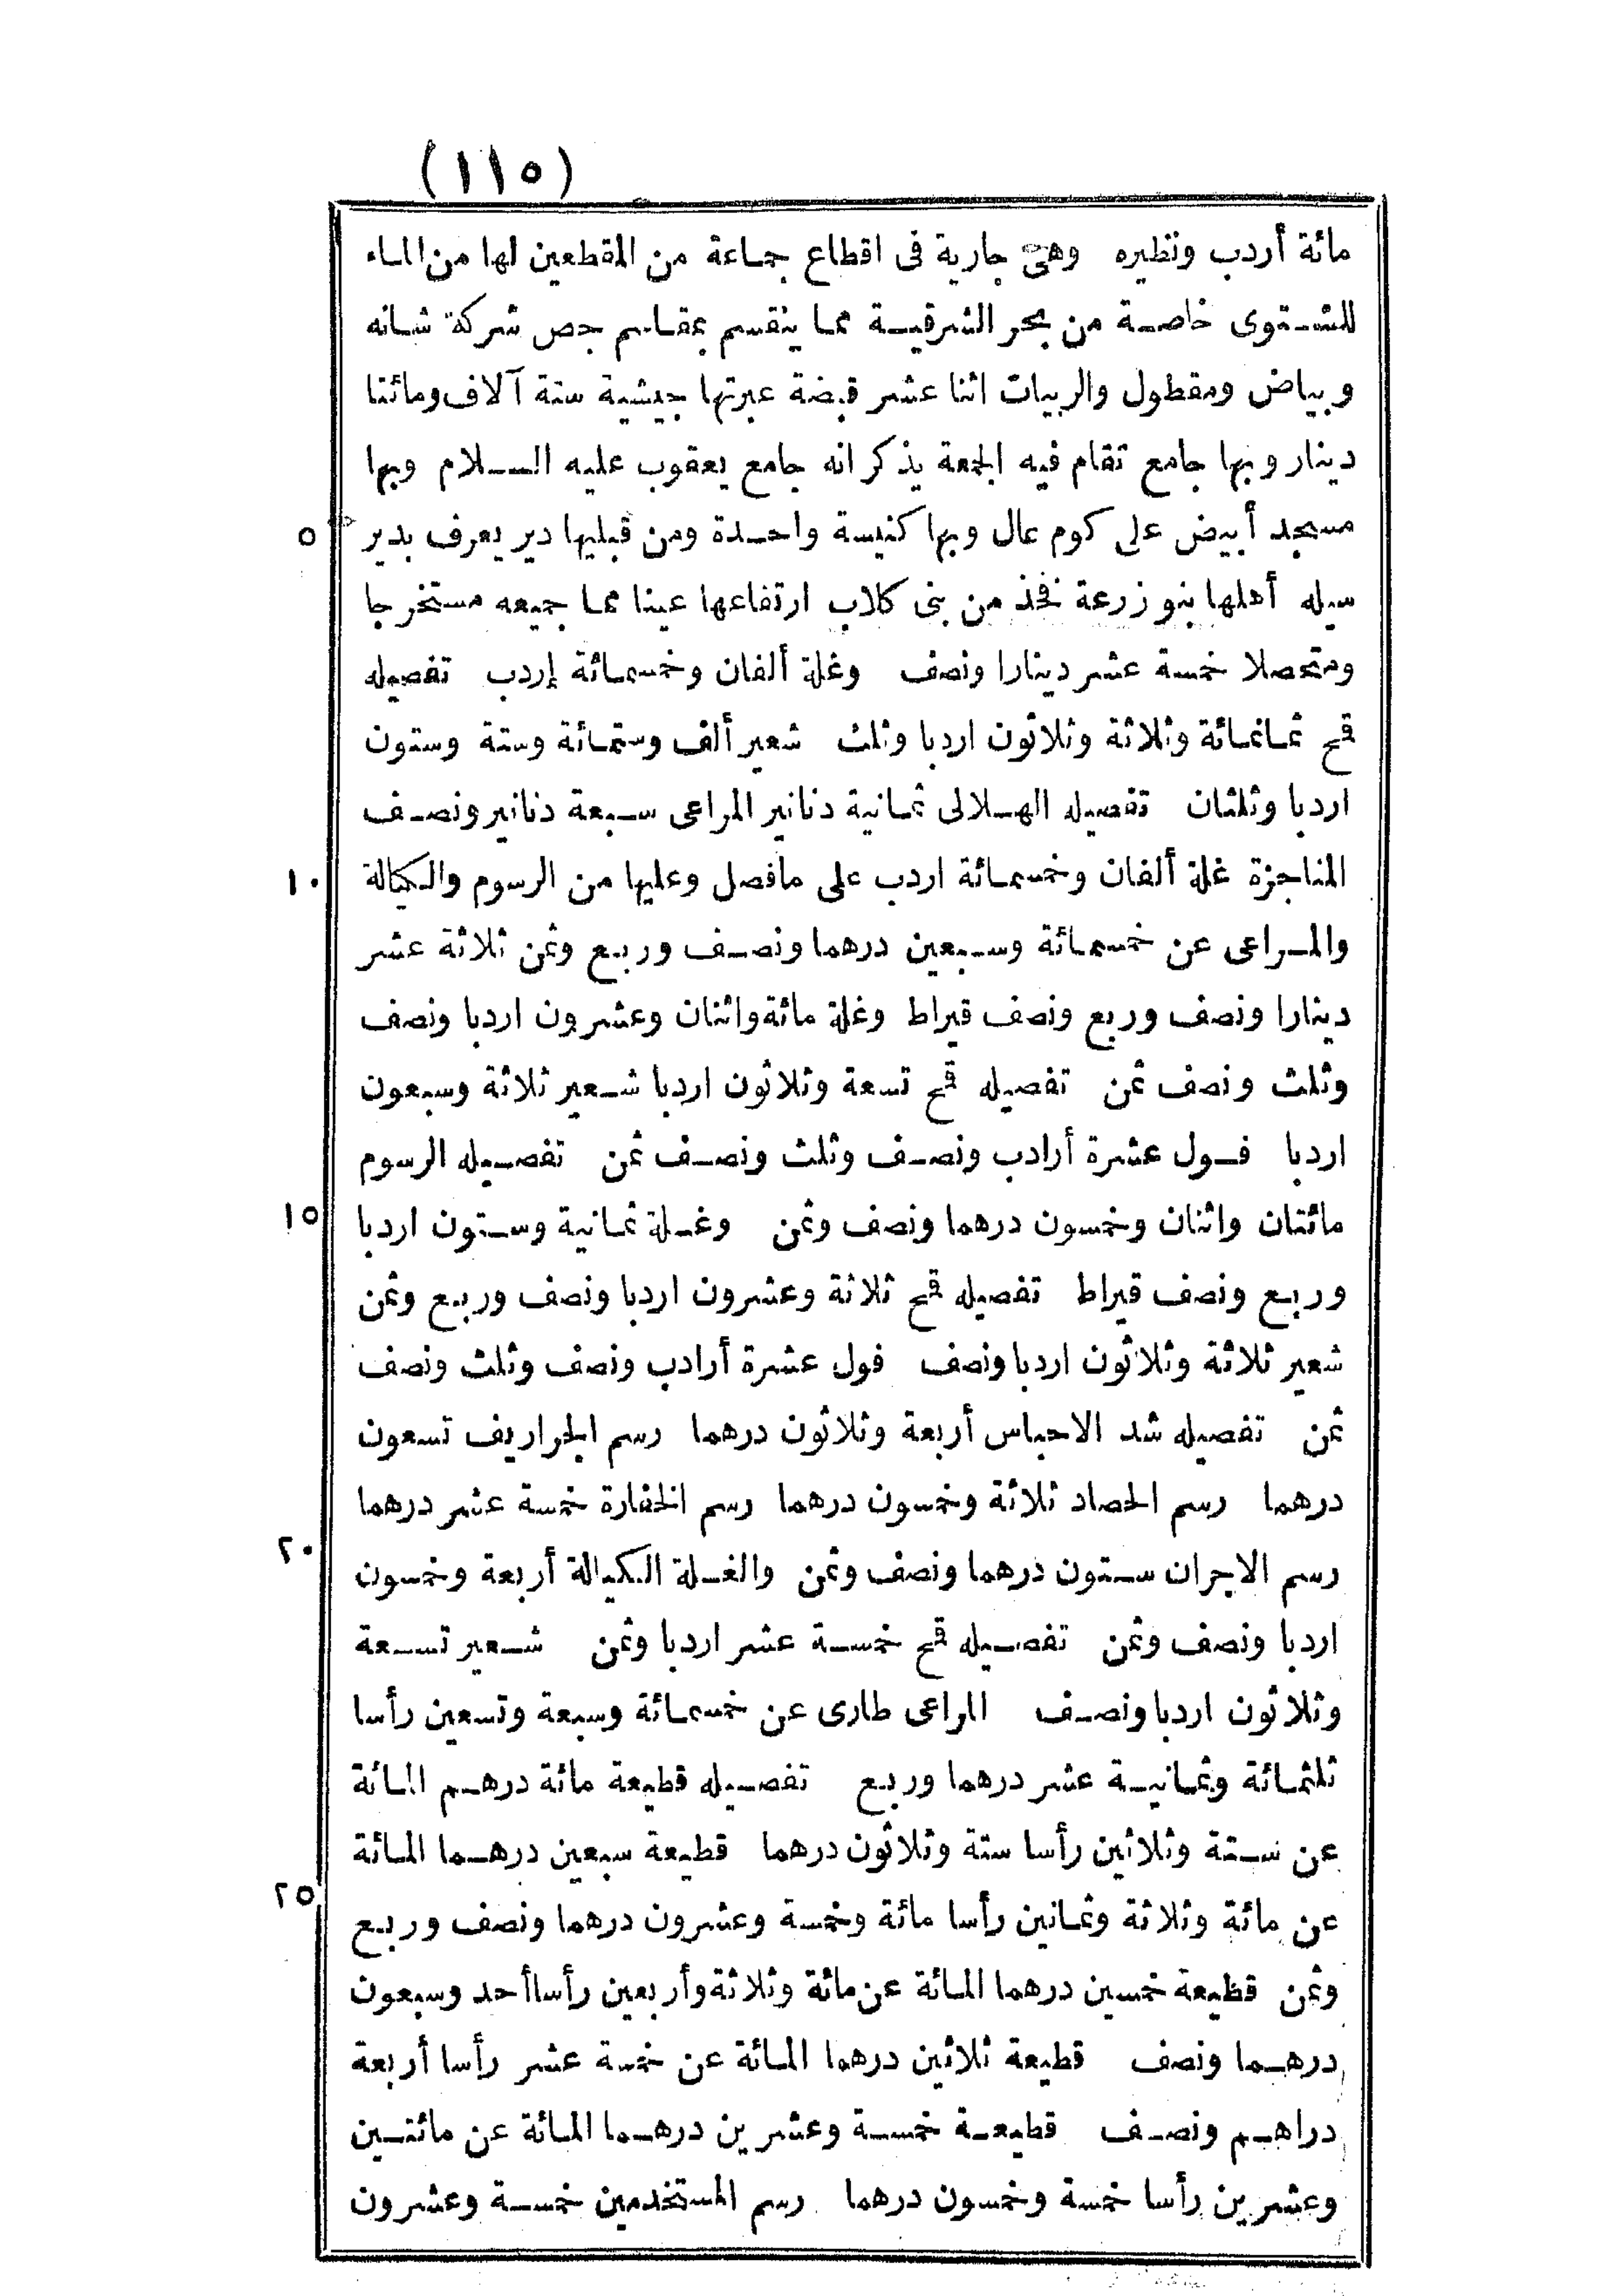 (١١٥)
مائة أردب ونظيره وهى جارية فى اقطاع جماعة من المقطعين لها من الماء
للشتوى خاصة من بحر الشرقية مما ينقسم بمقاسم جص شركة شانه
وبياض ومقطول والربيات اثنا عشر قبضة عبرتها جيشية ستة آلاف ومائتا
دينار وبها جامع تقام فيه الجمعة يذكر انه جامع يعقوب عليه السلام وبها
٥ مسجد أبيض على كوم عال وبها كنيسة واحدة ومن قبليها دير يعرف بدير
سيله أهلها بنو زرعة فخذ من بنى كلاب ارتفاعها عينا مما جميعه مستخرجا
ومتحصلا خمسة عشر دينارا ونصف وغلة ألفان وخمسمائة إردب تفصيله
قمح ثمانمائة وثلاثة وثلاثون اردبا وثلث شعير ألف وستمائة وستة وستون
اردبا وثلثان تفصيله الهلالى ثمانية دنانير المراعى سبعة دنانير ونصف
١٠ المناجزة غلة ألفان وخمسمائة اردب على مافصل وعليها من الرسوم والكيالة
والمراعى عن خمسمائة وسبعين درهما ونصف وربع وثمن ثلاثة عشر
دينارا ونصف وربع ونصف قيراط وغلة مائة واثنان وعشرون اردبا ونصف
وثلث ونصف ثمن تفصيله قمح تسعة وثلاثون اردبا شعير ثلاثة وسبعون
اردبا فول عشرة أرادب ونصف وثلث ونصف ثمن تفصيله الرسوم
١٥ مائتان واثنان وخمسون درهما ونصف وثمن وغلة ثمانية وستون اردبا
وربع ونصف قيراط تفصيله قمح ثلاثة وعشرون اردبا ونصف وربع وثمن
شعير ثلاثة وثلاثون اردبا ونصف فول عشرة أرادب ونصف وثلث ونصف
ثمن تفصيله شد الاحباس أربعة وثلاثون درهما رسم الجراريف تسعون
درهما رسم الحصاد ثلاثة وخمسون درهما رسم الخفارة خمسة عشر درهما
٢٠ رسم الاجران ستون درهما ونصف وثمن والغلة الكيالة أربعة وخمسون
اردبا ونصف وثمن تفصيله قمح خمسة عشر اردبا وثمن شعير تسعة
وثلاثون اردبا ونصف المراعى طارى عن خمسمائة وسبعة وتسعين رأسا
ثلثمائة وثمانية عشر درهما وربع تفصيله قطيعة مائة درهم المائة
عن ستة وثلاثين رأسا ستة وثلاثون درهما قطيعة سبعين درهما المائة
٢٥ عن مائة وثلاثة وثمانين رأسا مائة وخمسة وعشرون درهما ونصف وربع
وثمن قطيعة خمسين درهما المائة عن مائة وثلاثة وأربعين رأسا أحد وسبعون
درهما ونصف قطيعة ثلاثين درهما المائة عن خمسة عشر رأسا أربعة
دراهم ونصف قطيعة خمسة وعشرين درهما المائة عن مائتين
وعشرين رأسا خمسة وخمسون درهما رسم المستخدمين خمسة وعشرون